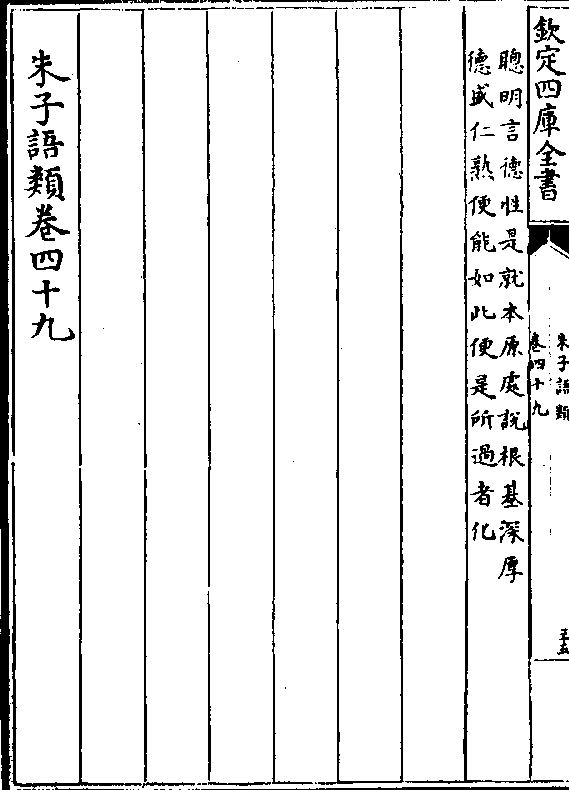 欽定四庫全書
朱子語類
卷四十九
聰明言德性是就本原處說根基深厚
德盛仁熟便能如此便是所過者化
朱子語類卷四十九